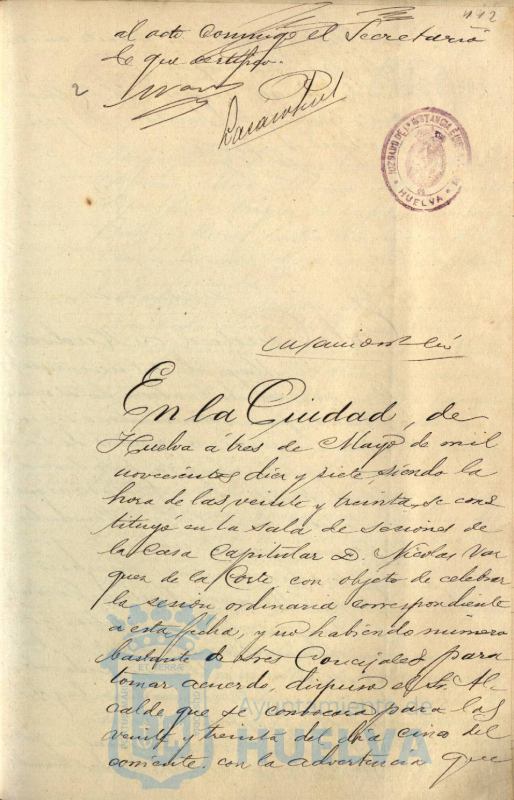 112
al acto conmigo el Secretario
de que certifico.
2
JUZGADO DE 1ª INSTANCIA E
HUELVA
En la Ciudad, de
Huelva á tres de Mayo de mil
novecientos diez y siete, siendo la
hora de las veinte y treinta, se cons
tituyó en la sala de sesiones de
la Casa Capitular D. Nicolas Vaz
quez de la Corte con objeto de celebrar
la sesión ordinaria correspondiente
a esta fecha, y no habiendo número
bastante de Sres Concejales para
tomar acuerdo, dispuso el Sr. Al-
calde que se convocara para las
veinte y treinta del día cinco del
corriente con la advertencia que
Ayuntamiento de
HUELVA